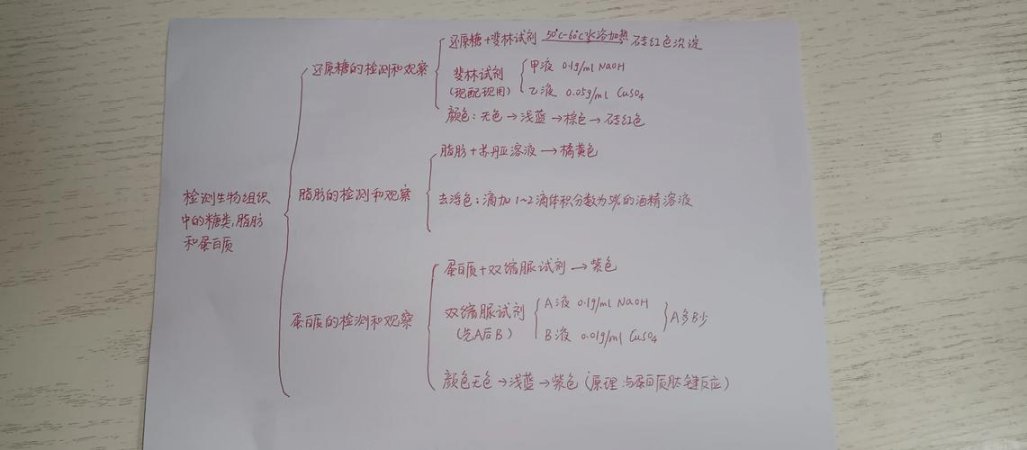 还原糖+斐林试剂 50℃-60℃水浴加热 砖红色沉淀
还原糖的检测和观察
斐林试剂
(现配现用)
甲液 0.1g/ml NaOH
乙液 0.05g/ml CuSO4
颜色:无色→浅蓝→棕色→砖红色
脂肪+苏丹Ⅲ溶液→橘黄色
检测生物组织
中的糖类,脂肪
和蛋白质
脂肪的检测和观察
去浮色:滴加1~2滴体积分数为50%的酒精溶液
蛋白质+双缩脲试剂→紫色
蛋白质的检测和观察
双缩脲试剂
(先A后B)
A液 0.1g/ml NaOH
B液 0.01g/ml CuSO4
A多B少
颜色无色→浅蓝→紫色(原理:与蛋白质肽键反应)